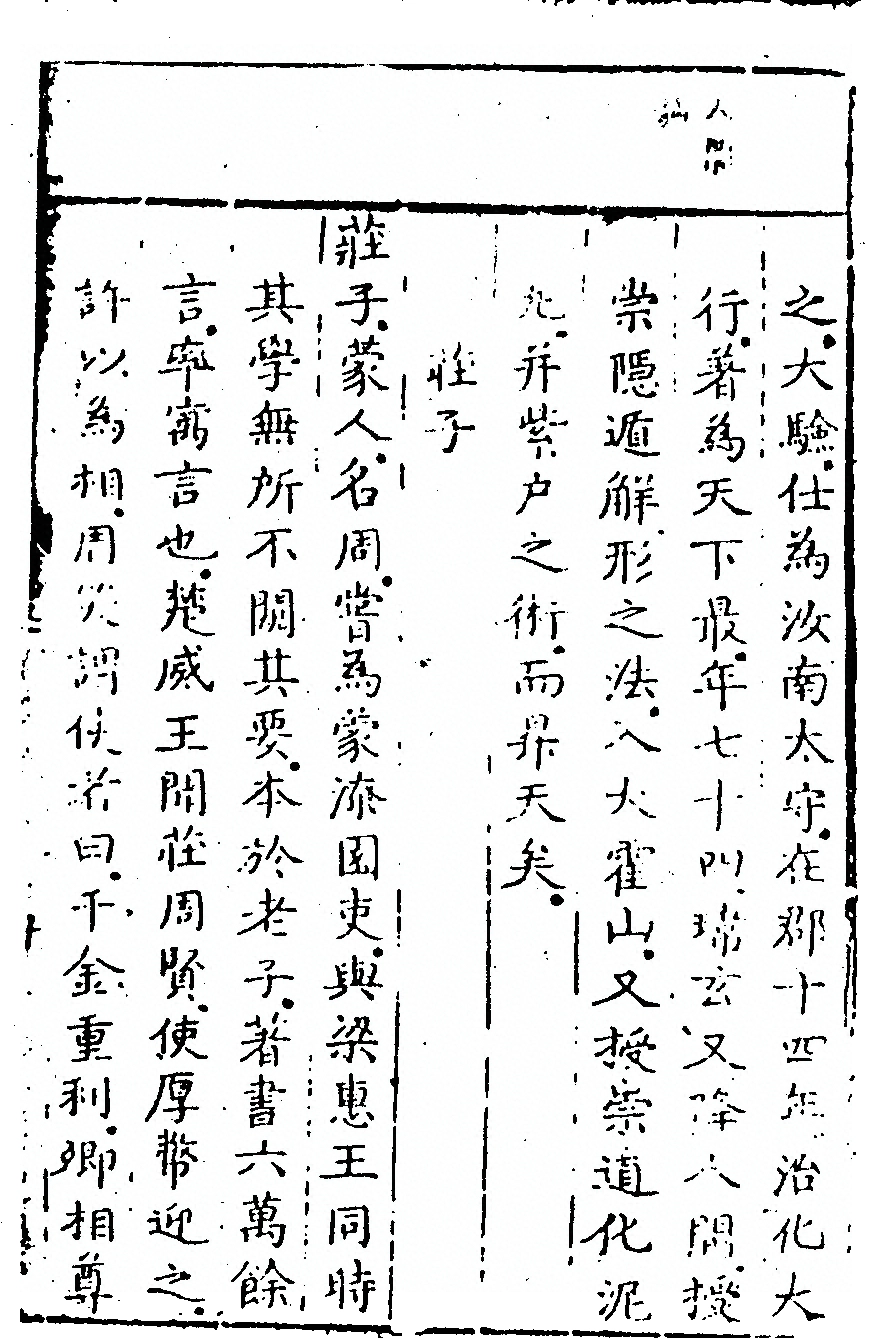 之大驗仕為汝南太守在郡十四年治化大
行著為天下最年七十四瑞玄又降人間授
崇隱遁解形之法入大霍山又授崇道化泥
丸并紫户之術而昇天矣
莊子
莊子蒙人名周嘗為蒙漆園吏與梁惠王同時
其學無所不闚其要本於老子著書六萬餘
言率寓言也楚威王聞莊周賢使厚幣迎之
許以為相周笑謂使者曰千金重利卿相尊